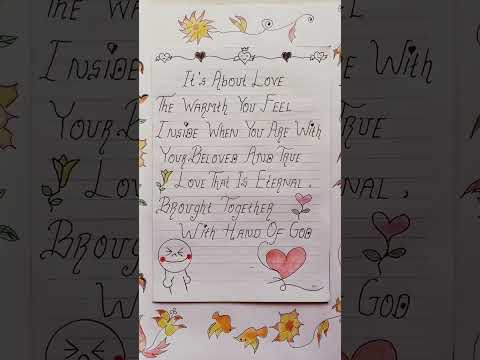 It's About Love
The Warmth You Feel
Inside When You Are With
Your Beloved And True
Love That Is Eternal,
Brought Together
With Hand Of God